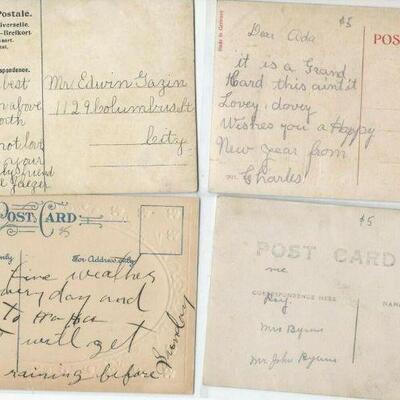 Postale.
iverselle.
-Brevkort
kaart.
stal.
spondence.
best
n above
orth
not love
your
friend
Mr Edwin Gazin
1129 Columbus St
City.
Made in Germany
$5
Dear Ada
POS
it is a Grand
Hard this aint it
Lovey, dovey
Wishes you a Happy
New year from
Charles
POST CARD
$5
nly
For Address only
Fine weather
every day and
to
I will get
raining before
Sunday
$5
POST CARD
me
CORRESPONDENCE HERE
NAM
Ray.
Mrs Byrns
Mr. John Byrns